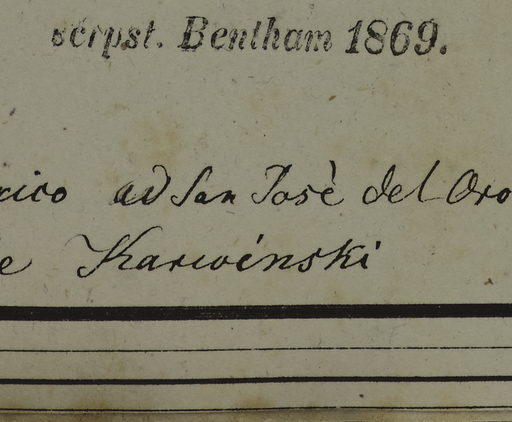 scrpst. Bentham 1869.
xico ad San José del Oro
e Karwinski